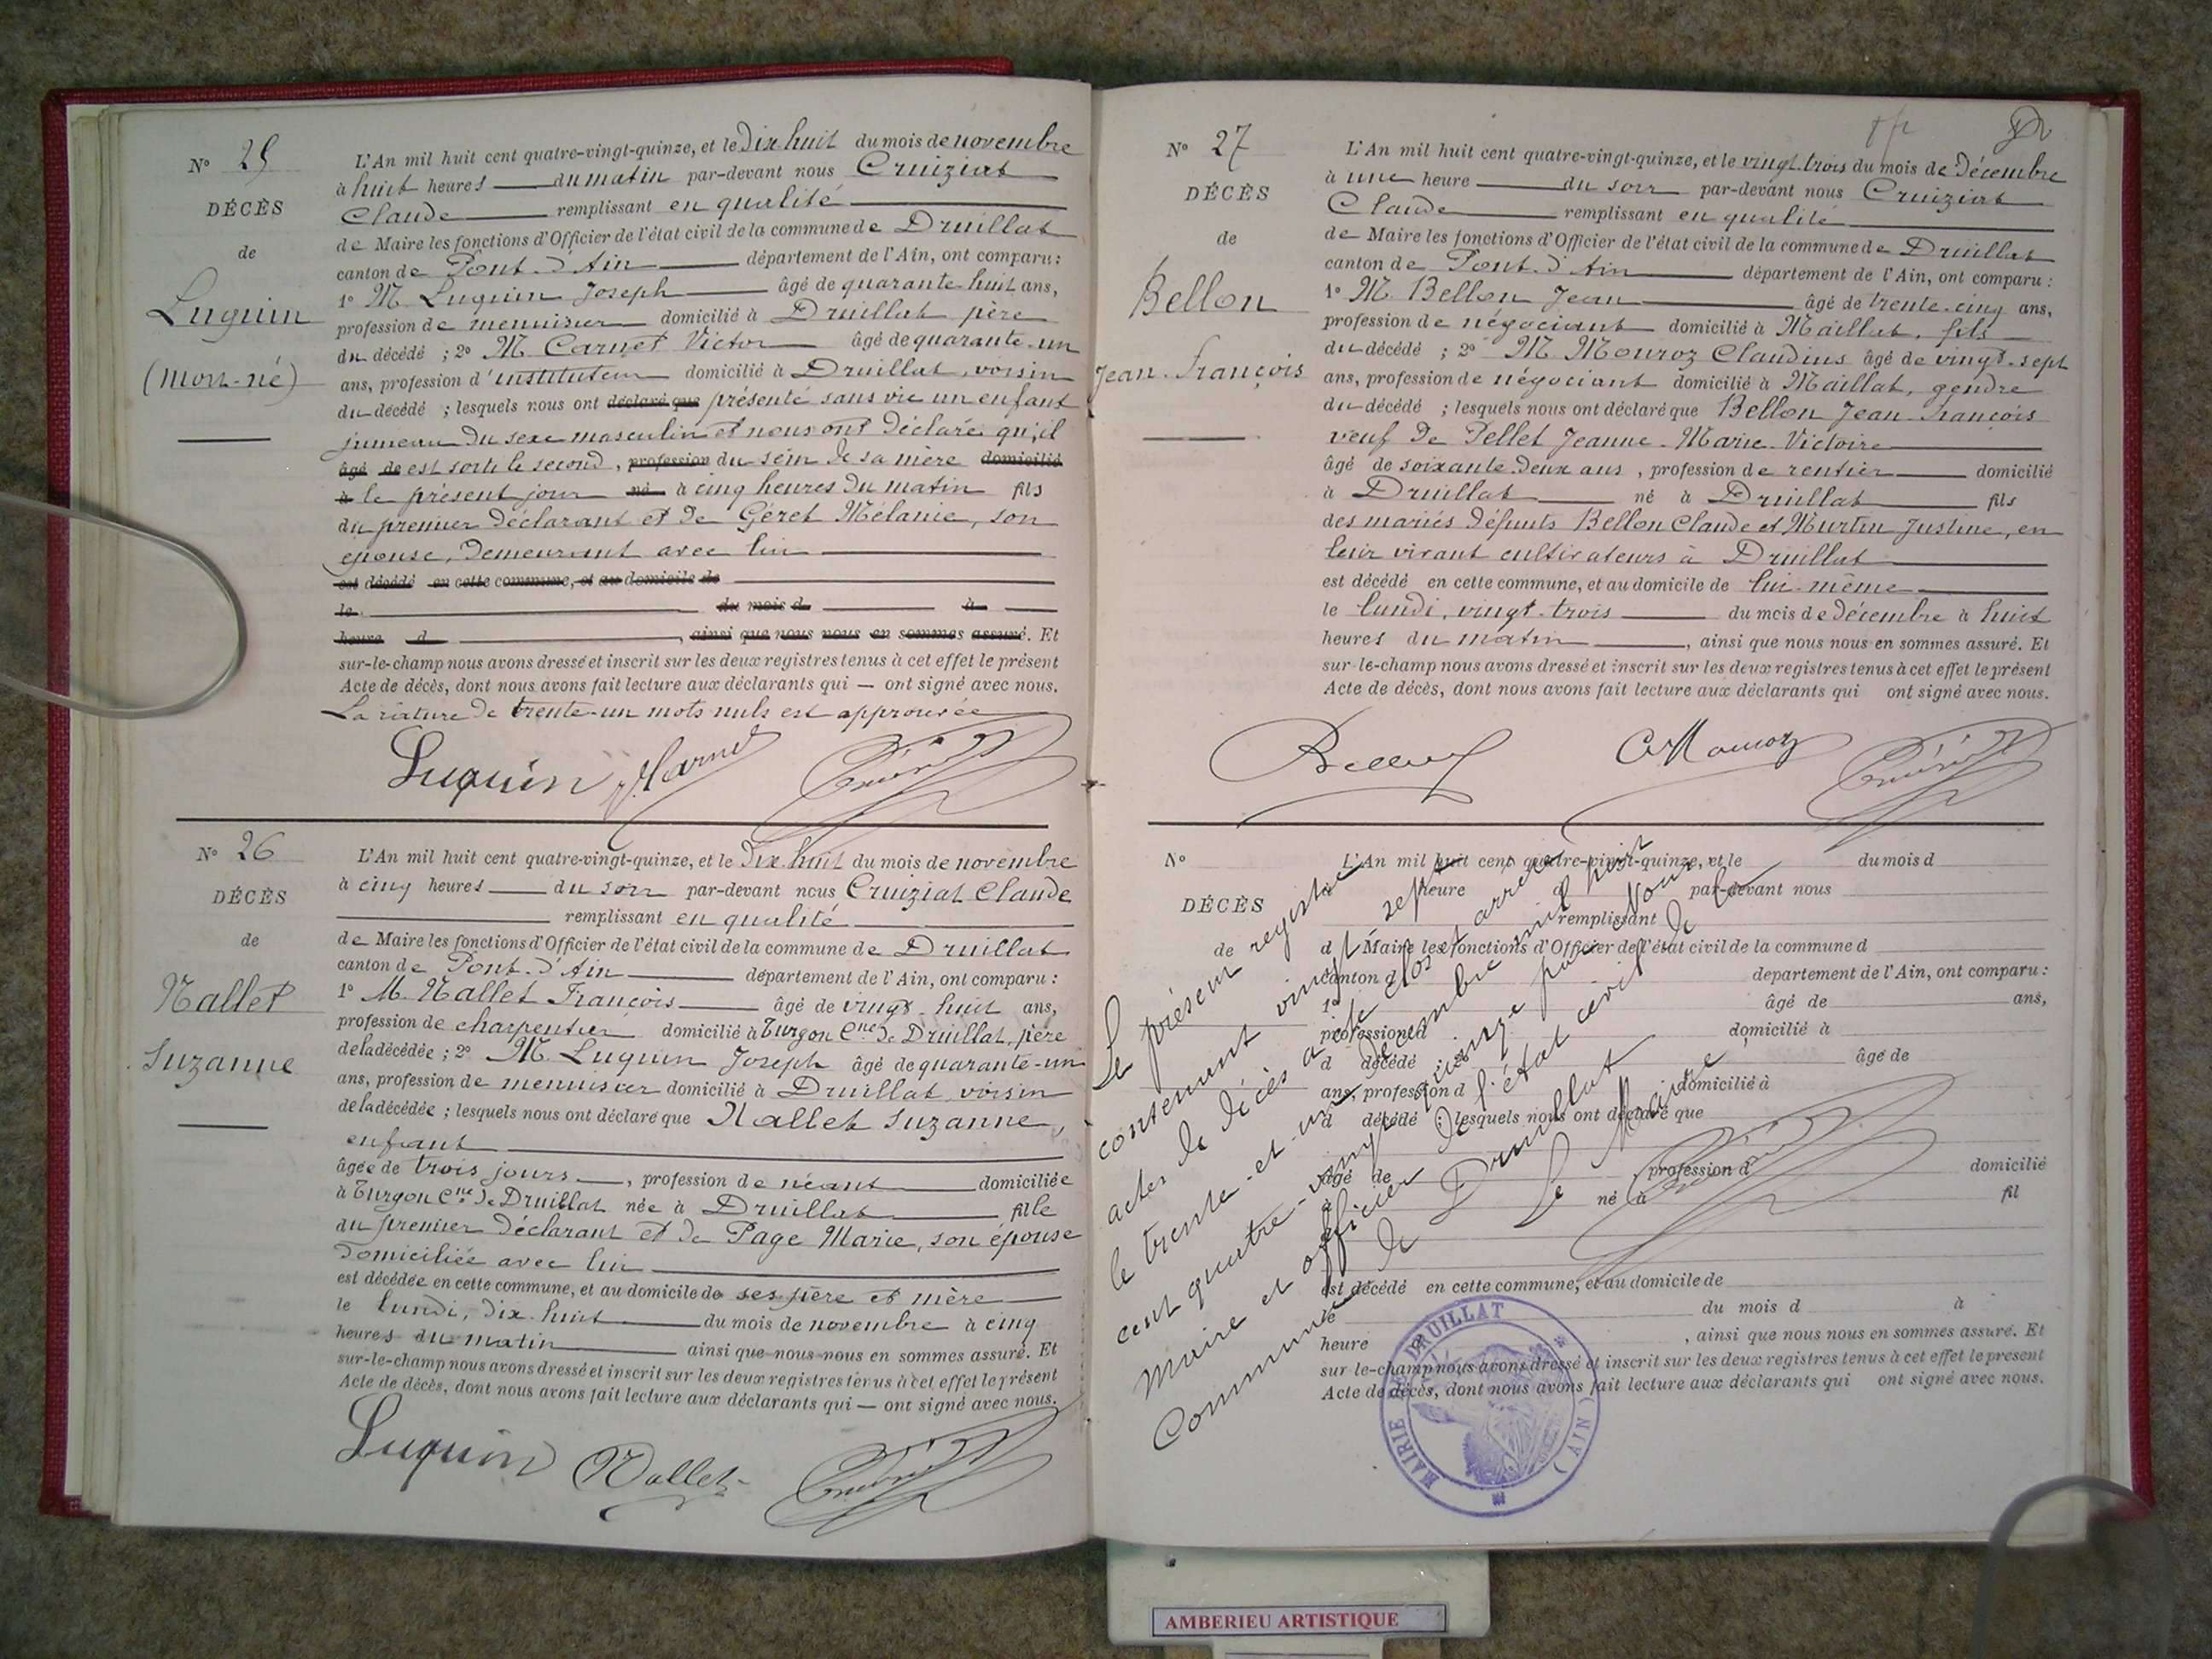 N° 25
DÉCÈS
de
Luquin
(mort-né)
L'An mil huit cent quatre-vingt-quinze, et le dix huit du mois de novembre
à huit heures du matin par-devant nous Cruiziat
Claude remplissant en qualité
de Maire les fonctions d'Officier de l'état civil de la commune de Druillat
canton de Pont-d'Ain département de l'Ain, ont comparu :
1° M. Luquin Joseph âgé de quarante-huit ans,
profession de menuisier domicilié à Druillat père
du décédé ; 2° M. Carnet Victor âgé de quarante-un
ans, profession d'instituteur domicilié à Druillat, voisin
du décédé ; lesquels nous ont déclaré que présenté sans vie un enfant
jumeau du sexe masculin et nous ont déclaré qu'il
âgé de est sorti le second, profession du sein de sa mère domicilié
à le présent jour né à cinq heures du matin fils
du premier déclarant et de Géret Mélanie, son
épouse, demeurant avec lui
est décédé en cette commune, et au domicile de
le du mois d à
heure d , ainsi que nous nous en sommes assuré. Et
sur-le-champ nous avons dressé et inscrit sur les deux registres tenus à cet effet le présent
Acte de décès, dont nous avons fait lecture aux déclarants qui — ont signé avec nous.
La rature de trente-un mots nuls est approuvée
Luquin Carnet
N° 26
DÉCÈS
de
Nallet
Suzanne
L'An mil huit cent quatre-vingt-quinze, et le dix-huit du mois de novembre
à cinq heures du soir par-devant nous Cruiziat Claude
remplissant en qualité
de Maire les fonctions d'Officier de l'état civil de la commune de Druillat
canton de Pont-d'Ain département de l'Ain, ont comparu :
1° M. Nallet François âgé de vingt-huit ans,
profession de charpentier domicilié à Turgon Cne de Druillat, père
de la décédée ; 2° M. Luquin Joseph âgé de quarante-un
ans, profession de menuisier domicilié à Druillat voisin
de la décédée ; lesquels nous ont déclaré que Nallet Suzanne,
enfant
âgée de trois jours, profession de néant domiciliée
à Turgon Cne de Druillat née à Druillat fille
du premier déclarant et de Page Marie, son épouse
domiciliée avec lui
est décédée en cette commune, et au domicile de ses père et mère
le lundi, dix-huit du mois de novembre à cinq
heures du matin ainsi que nous nous en sommes assuré. Et
sur-le-champ nous avons dressé et inscrit sur les deux registres tenus à cet effet le présent
Acte de décès, dont nous avons fait lecture aux déclarants qui — ont signé avec nous.
Luquin Nallet
N° 27
DÉCÈS
de
Bellon
Jean-François
L'An mil huit cent quatre-vingt-quinze, et le vingt-trois du mois de Décembre
à une heure du soir par-devant nous Cruiziat
Claude remplissant en qualité
de Maire les fonctions d'Officier de l'état civil de la commune de Druillat
canton de Pont-d'Ain département de l'Ain, ont comparu :
1° M. Bellon Jean âgé de trente-cinq ans,
profession de négociant domicilié à Maillat, fils
du décédé ; 2° M. Mouroz Claudius âgé de vingt-sept
ans, profession de négociant domicilié à Maillat, gendre
du décédé ; lesquels nous ont déclaré que Bellon Jean-François
veuf de Pellet Jeanne-Marie-Victoire
âgé de soixante-deux ans, profession de rentier domicilié
à Druillat né à Druillat fils
des mariés défunts Bellon Claude et Murtin Justine, en
leur vivant cultivateurs à Druillat
est décédé en cette commune, et au domicile de lui-même
le lundi, vingt-trois du mois de décembre à huit
heures du matin, ainsi que nous nous en sommes assuré. Et
sur-le-champ nous avons dressé et inscrit sur les deux registres tenus à cet effet le présent
Acte de décès, dont nous avons fait lecture aux déclarants qui ont signé avec nous.
Bellon C Mouroz
N°
DÉCÈS
de
L'An mil huit cent quatre-vingt-quinze, et le du mois d
heure d par-devant nous
remplissant
d Maire les fonctions d'Officier de l'état civil de la commune d
canton d département de l'Ain, ont comparu :
1° âgé de ans,
profession d domicilié à
d décédé âgé de
ans, profession d domicilié à
d décédé ; lesquels nous ont déclaré que
âgé de , profession d domicilié
né à fil
est décédé en cette commune, et au domicile de
le du mois d à
heure , ainsi que nous nous en sommes assuré. Et
sur-le-champ nous avons dressé et inscrit sur les deux registres tenus à cet effet le présent
Acte de décès, dont nous avons fait lecture aux déclarants qui ont signé avec nous.
Le présent registre
contenant vingt sept
actes de décès a été clos et arrêté
le trente-et-un décembre mil huit
cent quatre-vingt-quinze par Nous
Maire et officier de l'état civil de la
Commune de Druillat
Le Maire,
MAIRIE DE DRUILLAT (AIN)
AMBERIEU ARTISTIQUE